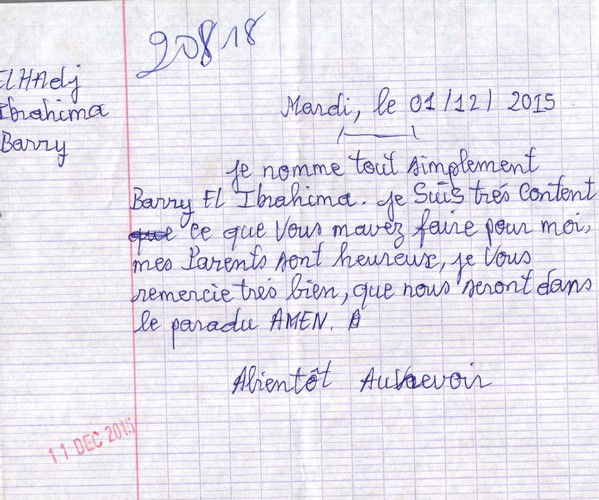 20818
ELHAdj
Ibrahima
Barry
Mardi, le 01/12/ 2015
je nomme tout simplement
Barry El Ibrahima. je Suis trés Content
que ce que Vous mavez faire pour moi,
mes Parents sont heureux, je Vous
remercie trés bien, que nous seront dans
le paradu AMEN. A
Abientôt Aurevoir
11 DEC 2015